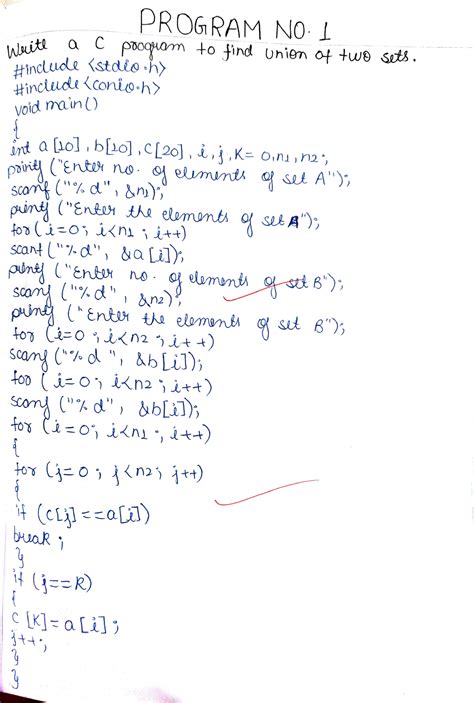 PROGRAM NO. 1
Write a C program to find union of two sets.
#include <stdio.h>
#include <conio.h>
void main()
{
int a[10], b[10], C[20], i, j, K = 0, n1, n2;
printf ("Enter no. of elements of set A");
scanf ("%d", &n1);
printf ("Enter the elements of set A");
for (i=0; i<n1; i++)
scanf ("%d", &a[i]);
printf ("Enter no. of elements of set B");
scanf ("%d", &n2);
printf ("Enter the elements of set B");
for (i=0; i<n2; i++)
scanf ("%d", &b[i]);
for (i=0; i<n2; i++)
scanf ("%d", &b[i]);
for (i=0; i<n1; i++)
{
for (j=0; j<n2; j++)
{
if (c[j]==a[i])
break;
}
if (j==R)
{
C[K]=a[i];
j++;
}
}